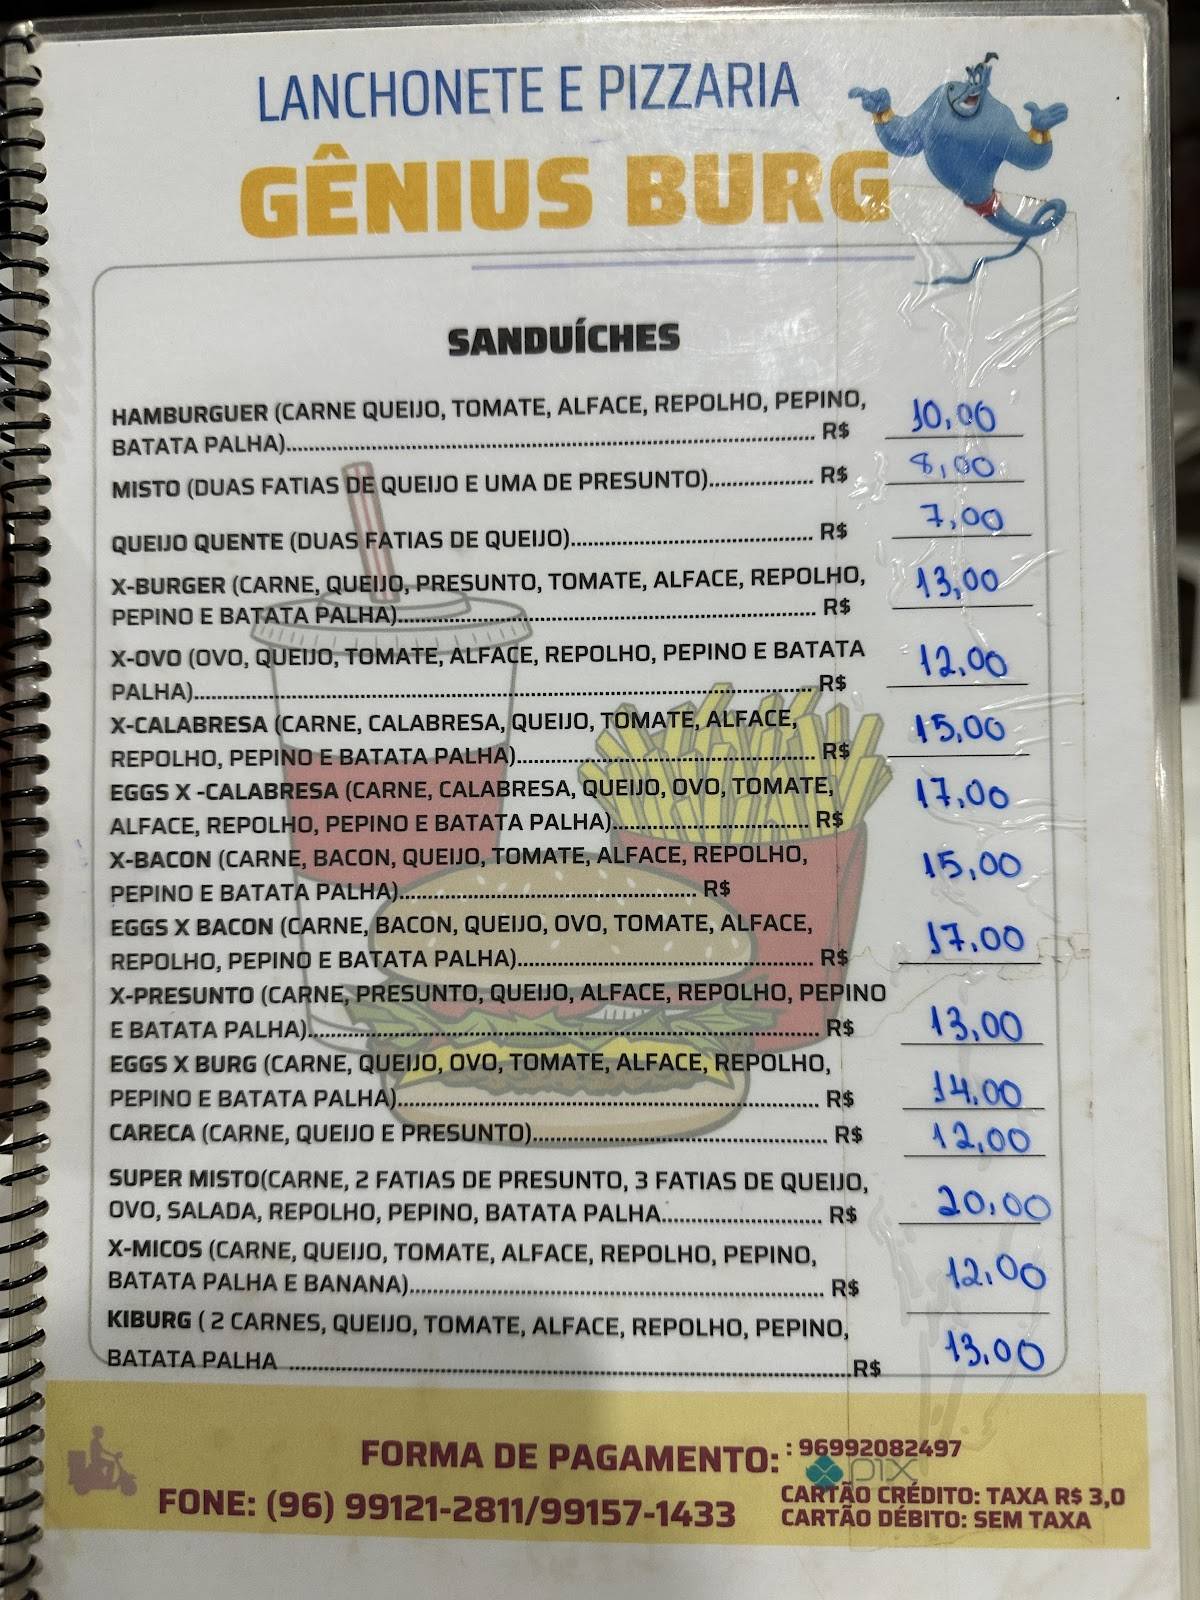 LANCHONETE E PIZZARIA
GÊNIUS BURG
SANDUÍCHES
HAMBURGUER (CARNE QUEIJO, TOMATE, ALFACE, REPOLHO, PEPINO,
BATATA PALHA)........ R$ 10,00
MISTO (DUAS FATIAS DE QUEIJO E UMA DE PRESUNTO)........ R$ 8,00
QUEIJO QUENTE (DUAS FATIAS DE QUEIJO)........ R$ 7,00
X-BURGER (CARNE, QUEIJO, PRESUNTO, TOMATE, ALFACE, REPOLHO,
PEPINO E BATATA PALHA)........ R$ 13,00
X-OVO (OVO, QUEIJO, TOMATE, ALFACE, REPOLHO, PEPINO E BATATA
PALHA)........ R$ 12,00
X-CALABRESA (CARNE, CALABRESA, QUEIJO, TOMATE, ALFACE,
REPOLHO, PEPINO E BATATA PALHA)........ R$ 15,00
EGGS X -CALABRESA (CARNE, CALABRESA, QUEIJO, OVO, TOMATE,
ALFACE, REPOLHO, PEPINO E BATATA PALHA)........ R$ 17,00
X-BACON (CARNE, BACON, QUEIJO, TOMATE, ALFACE, REPOLHO,
PEPINO E BATATA PALHA)........ R$ 15,00
EGGS X BACON (CARNE, BACON, QUEIJO, OVO, TOMATE, ALFACE,
REPOLHO, PEPINO E BATATA PALHA)........ R$ 17.00
X-PRESUNTO (CARNE, PRESUNTO, QUEIJO, ALFACE, REPOLHO, PEPINO
E BATATA PALHA)........ R$ 13,00
EGGS X BURG (CARNE, QUEIJO, OVO, TOMATE, ALFACE, REPOLHO,
PEPINO E BATATA PALHA)........ R$ 14,00
CARECA (CARNE, QUEIJO E PRESUNTO)........ R$ 12,00
SUPER MISTO(CARNE, 2 FATIAS DE PRESUNTO, 3 FATIAS DE QUEIJO,
OVO, SALADA, REPOLHO, PEPINO, BATATA PALHA........ R$ 20,00
X-MICOS (CARNE, QUEIJO, TOMATE, ALFACE, REPOLHO, PEPINO,
BATATA PALHA E BANANA)........ R$ 12,00
KIBURG ( 2 CARNES, QUEIJO, TOMATE, ALFACE, REPOLHO, PEPINO,
BATATA PALHA ........R$ 13,00
FORMA DE PAGAMENTO: : 96992082497
pix
FONE: (96) 99121-2811/99157-1433
CARTÃO CRÉDITO: TAXA R$ 3,0
CARTÃO DÉBITO: SEM TAXA